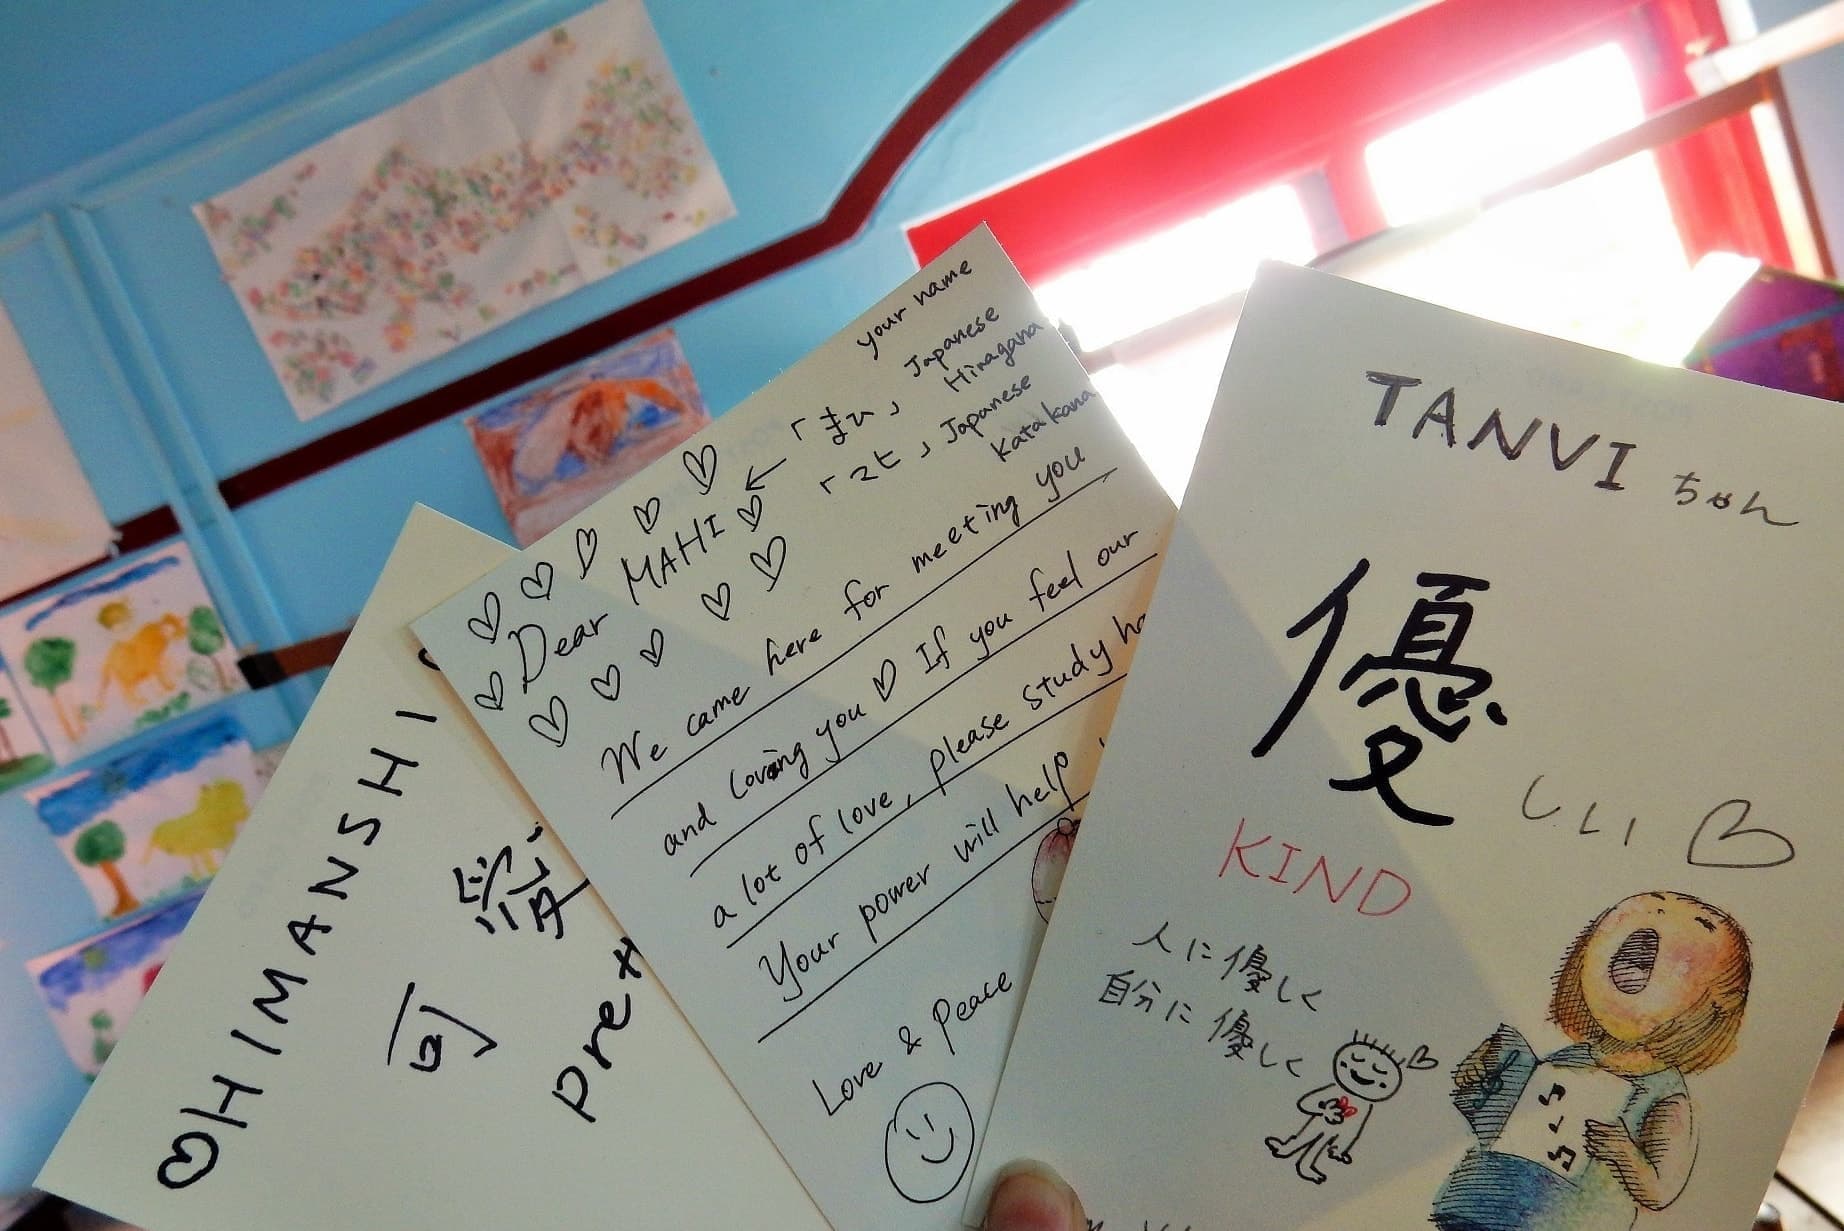 HIMANSHI
可愛
your name
「まひ」 Japanese Hiragana
「マヒ」 Japanese Katakana
Dear MAHI
We came here for meeting you
and loving you If you feel our
a lot of love, please study
Your power will help
Love & Peace
TANVI ちゃん
優しい
KIND
人に優しく
自分に優しく